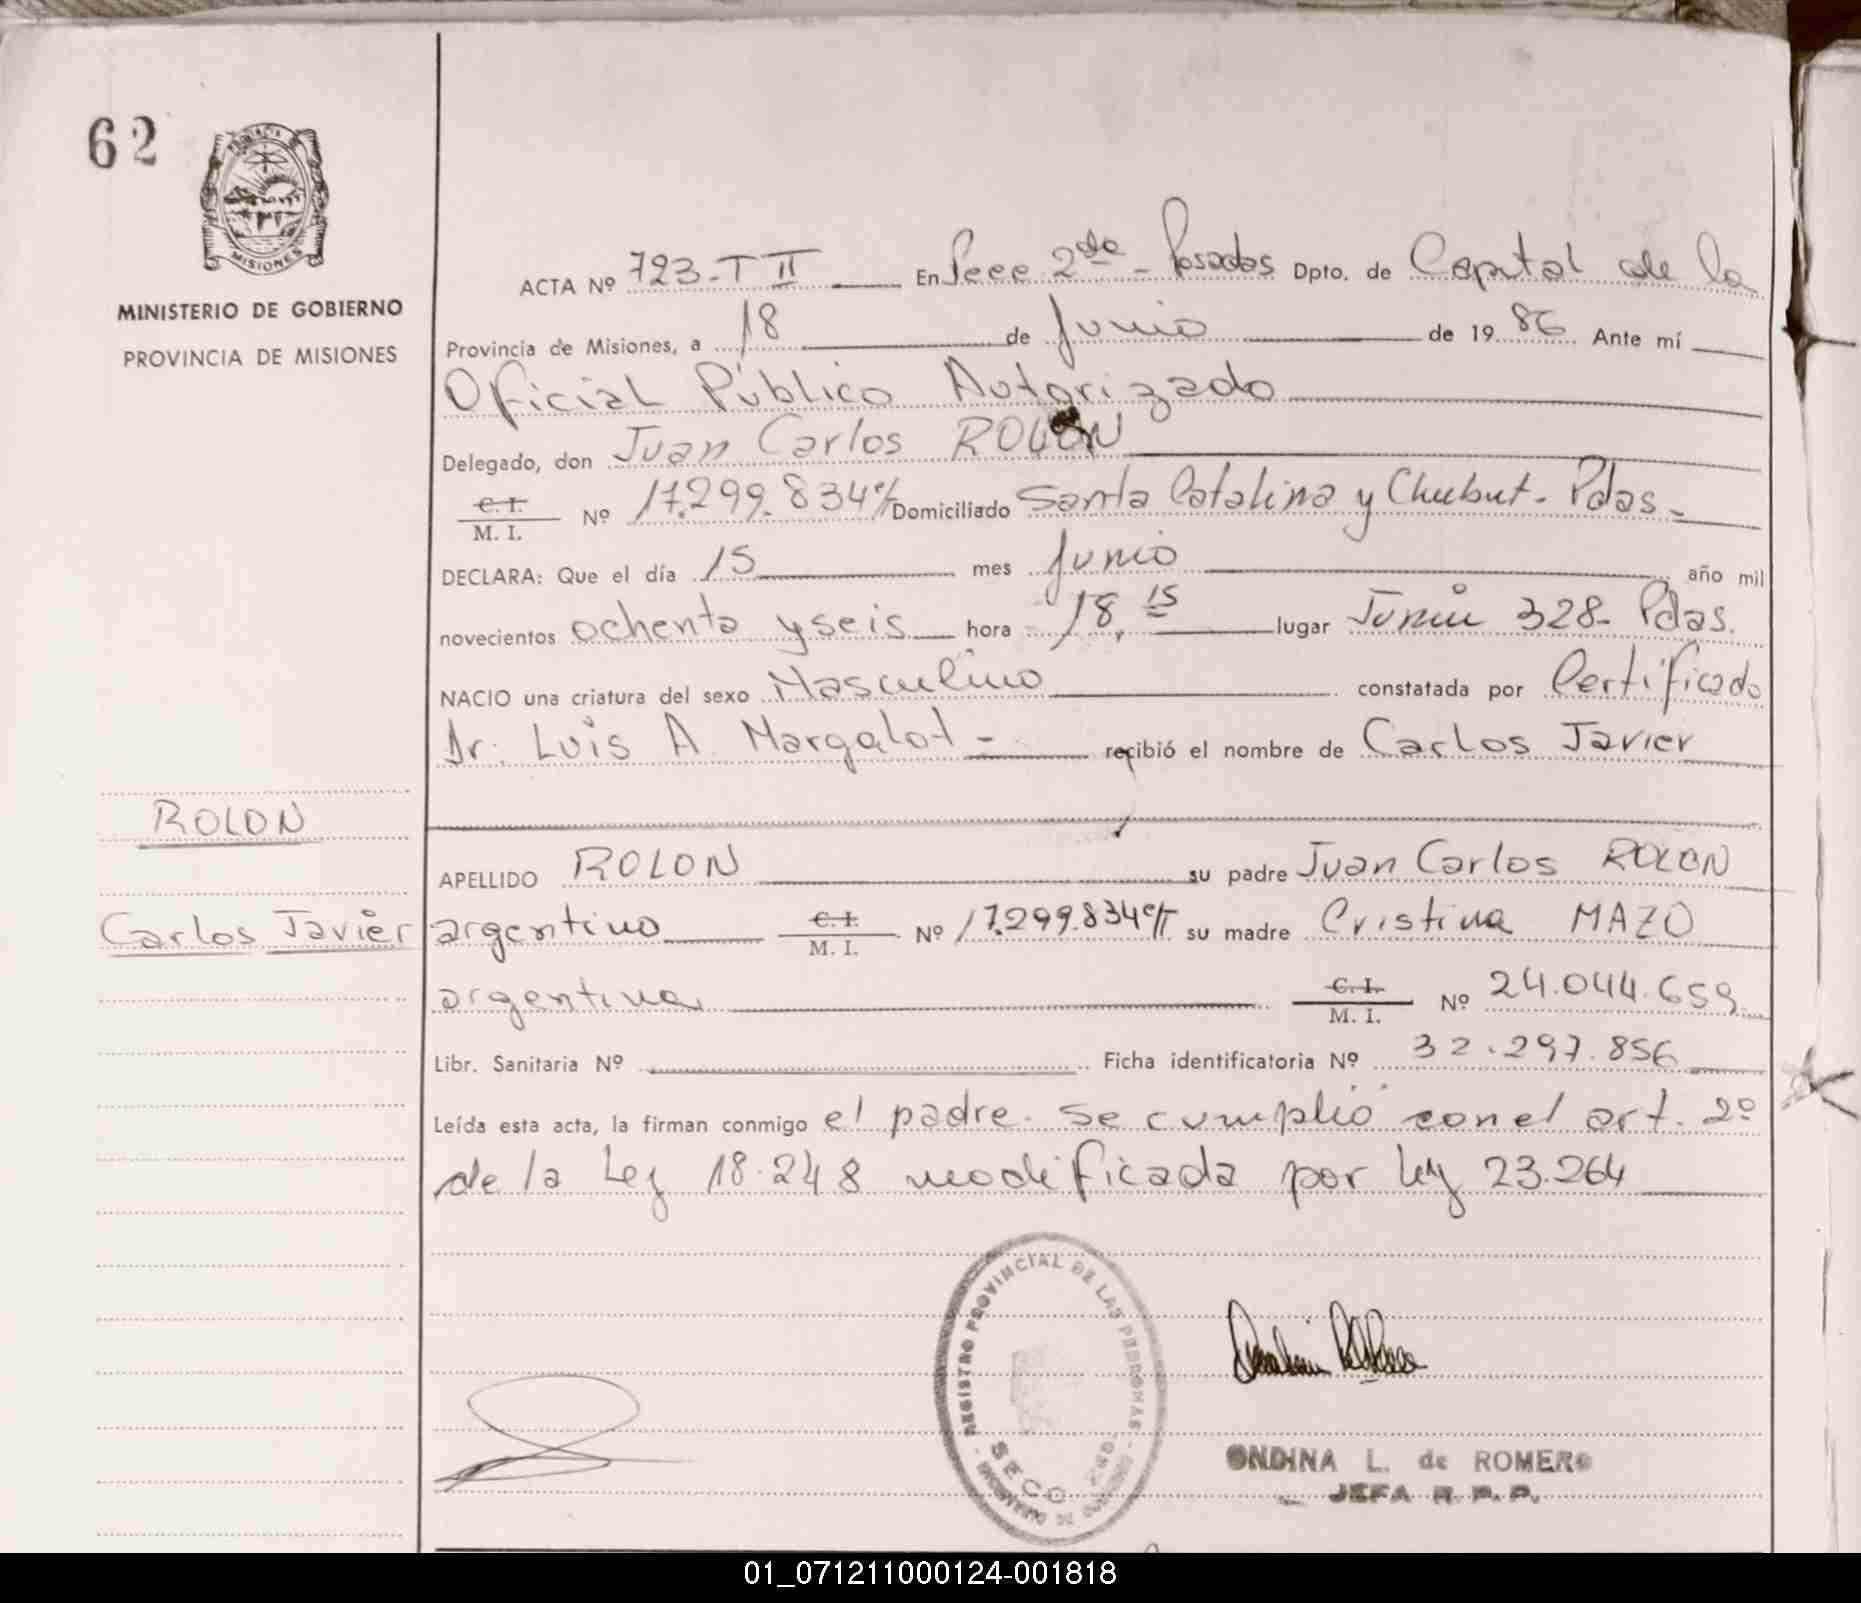 62
PROVINCIA DE
MISIONES
MINISTERIO DE GOBIERNO
PROVINCIA DE MISIONES
ACTA Nº 723-T II En Secc 2da - Posadas Dpto. de Capital de la
Provincia de Misiones, a 18 de Junio de 1986 Ante mí
Oficial Público Autorizado
Delegado, don Juan Carlos ROLON
C. I.
M. I. Nº 17.299.834 Domiciliado Santa Catalina y Chubut - Pdas -
DECLARA: Que el día 15 mes Junio año mil
novecientos ochenta y seis hora 18,15 lugar Junín 328- Pdas.
NACIO una criatura del sexo Masculino constatada por Certificado
Dr. Luis A. Margalot - recibió el nombre de Carlos Javier
ROLON
APELLIDO ROLON su padre Juan Carlos ROLON
Carlos Javier
argentino C. I.
M. I. Nº 17.299.834 su madre Cristina MAZO
argentina C. I.
M. I. Nº 24.044.659
Libr. Sanitaria Nº Ficha identificatoria Nº 32.297.856
Leída esta acta, la firman conmigo el padre. Se cumplió con el art. 2º
de la Ley 18.248 modificada por ley 23.264
REGISTRO PROVINCIAL DE LAS PERSONAS
SECC 2da
ONDINA L. de ROMERO
JEFA R. P. P.
01_071211000124-001818